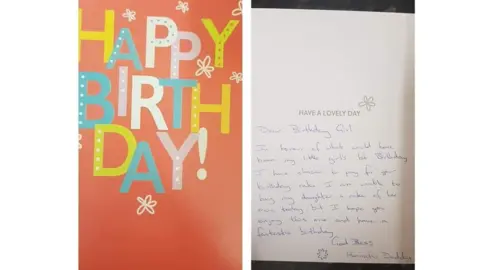 HAPPY
BIRTH
DAY!
HAVE A LOVELY DAY
Dear Birthday Girl
In honour of what would have
been my little girl's 1st Birthday
I have chosen to pay for your
birthday cake. I am unable to
buy my daughter a cake of her
own today but I hope you
enjoy this one and have a
fantastic birthday
God Bless
Daddy